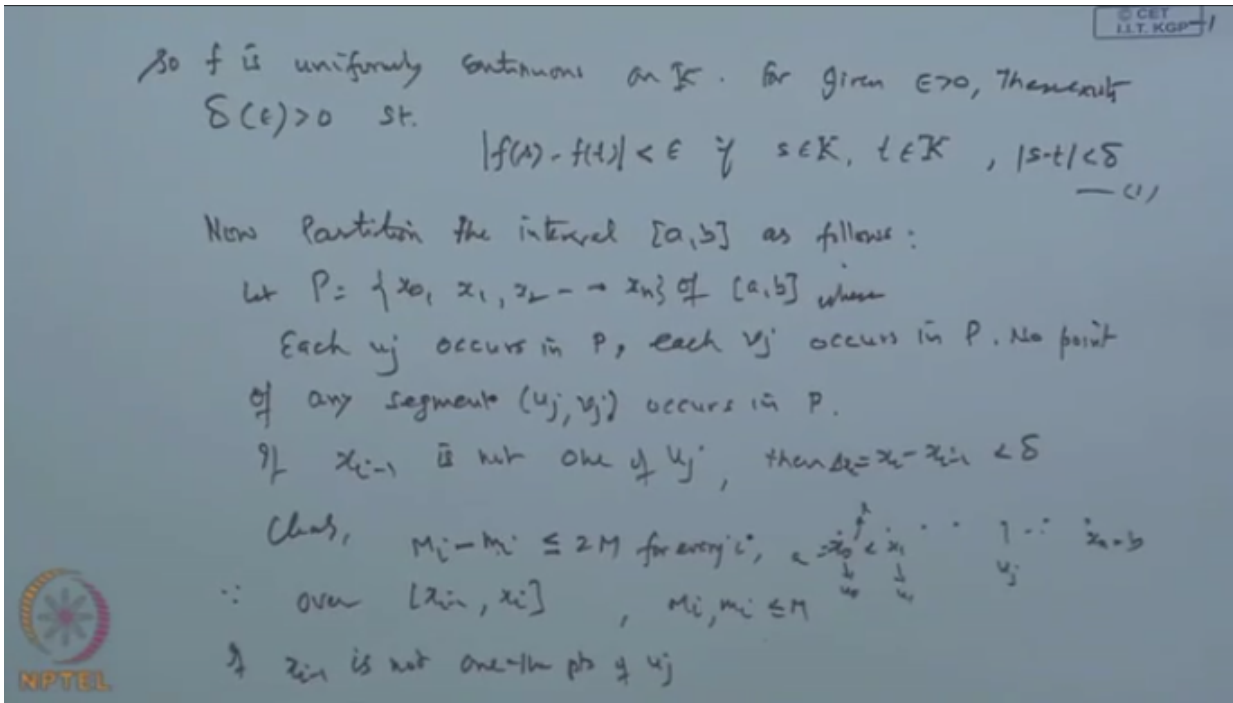 © CET
I.I.T. KGP
So f is uniformly continuous on K. For given ϵ>0, There exists
δ(ϵ)>0 st.
|f(s)-f(t)| < ϵ if s∈K, t∈K, |s-t|<δ
— (1)
Now Partition the interval [a,b] as follows:
Let P = {x₀, x₁, x₂ - - - xₙ} of [a,b] where
Each uj occurs in P, each vj occurs in P. No point
of any segment (uj, vj) occurs in P.
If xᵢ₋₁ is not one of uj, then Δxᵢ = xᵢ - xᵢ₋₁ < δ
Mᵢ - mᵢ ≤ 2M for every i, a = x₀ < x₁ . . . xₙ = b
uj
∵ over [xᵢ₋₁, xᵢ], Mᵢ, mᵢ ≤ M
If xᵢ₋₁ is not one the pts of uj
NPTEL